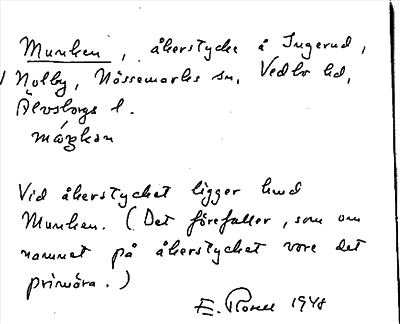 Munken, åkerstycke å Ingerud,
Nolby, Nössemarks sn, Vedbo hd,
Älvsborgs l.
Vid åkerstycket ligger hmd
Munken. (Det förefaller, som om
namnet på åkerstycket vore det
primära.)
E. Rosell 1948